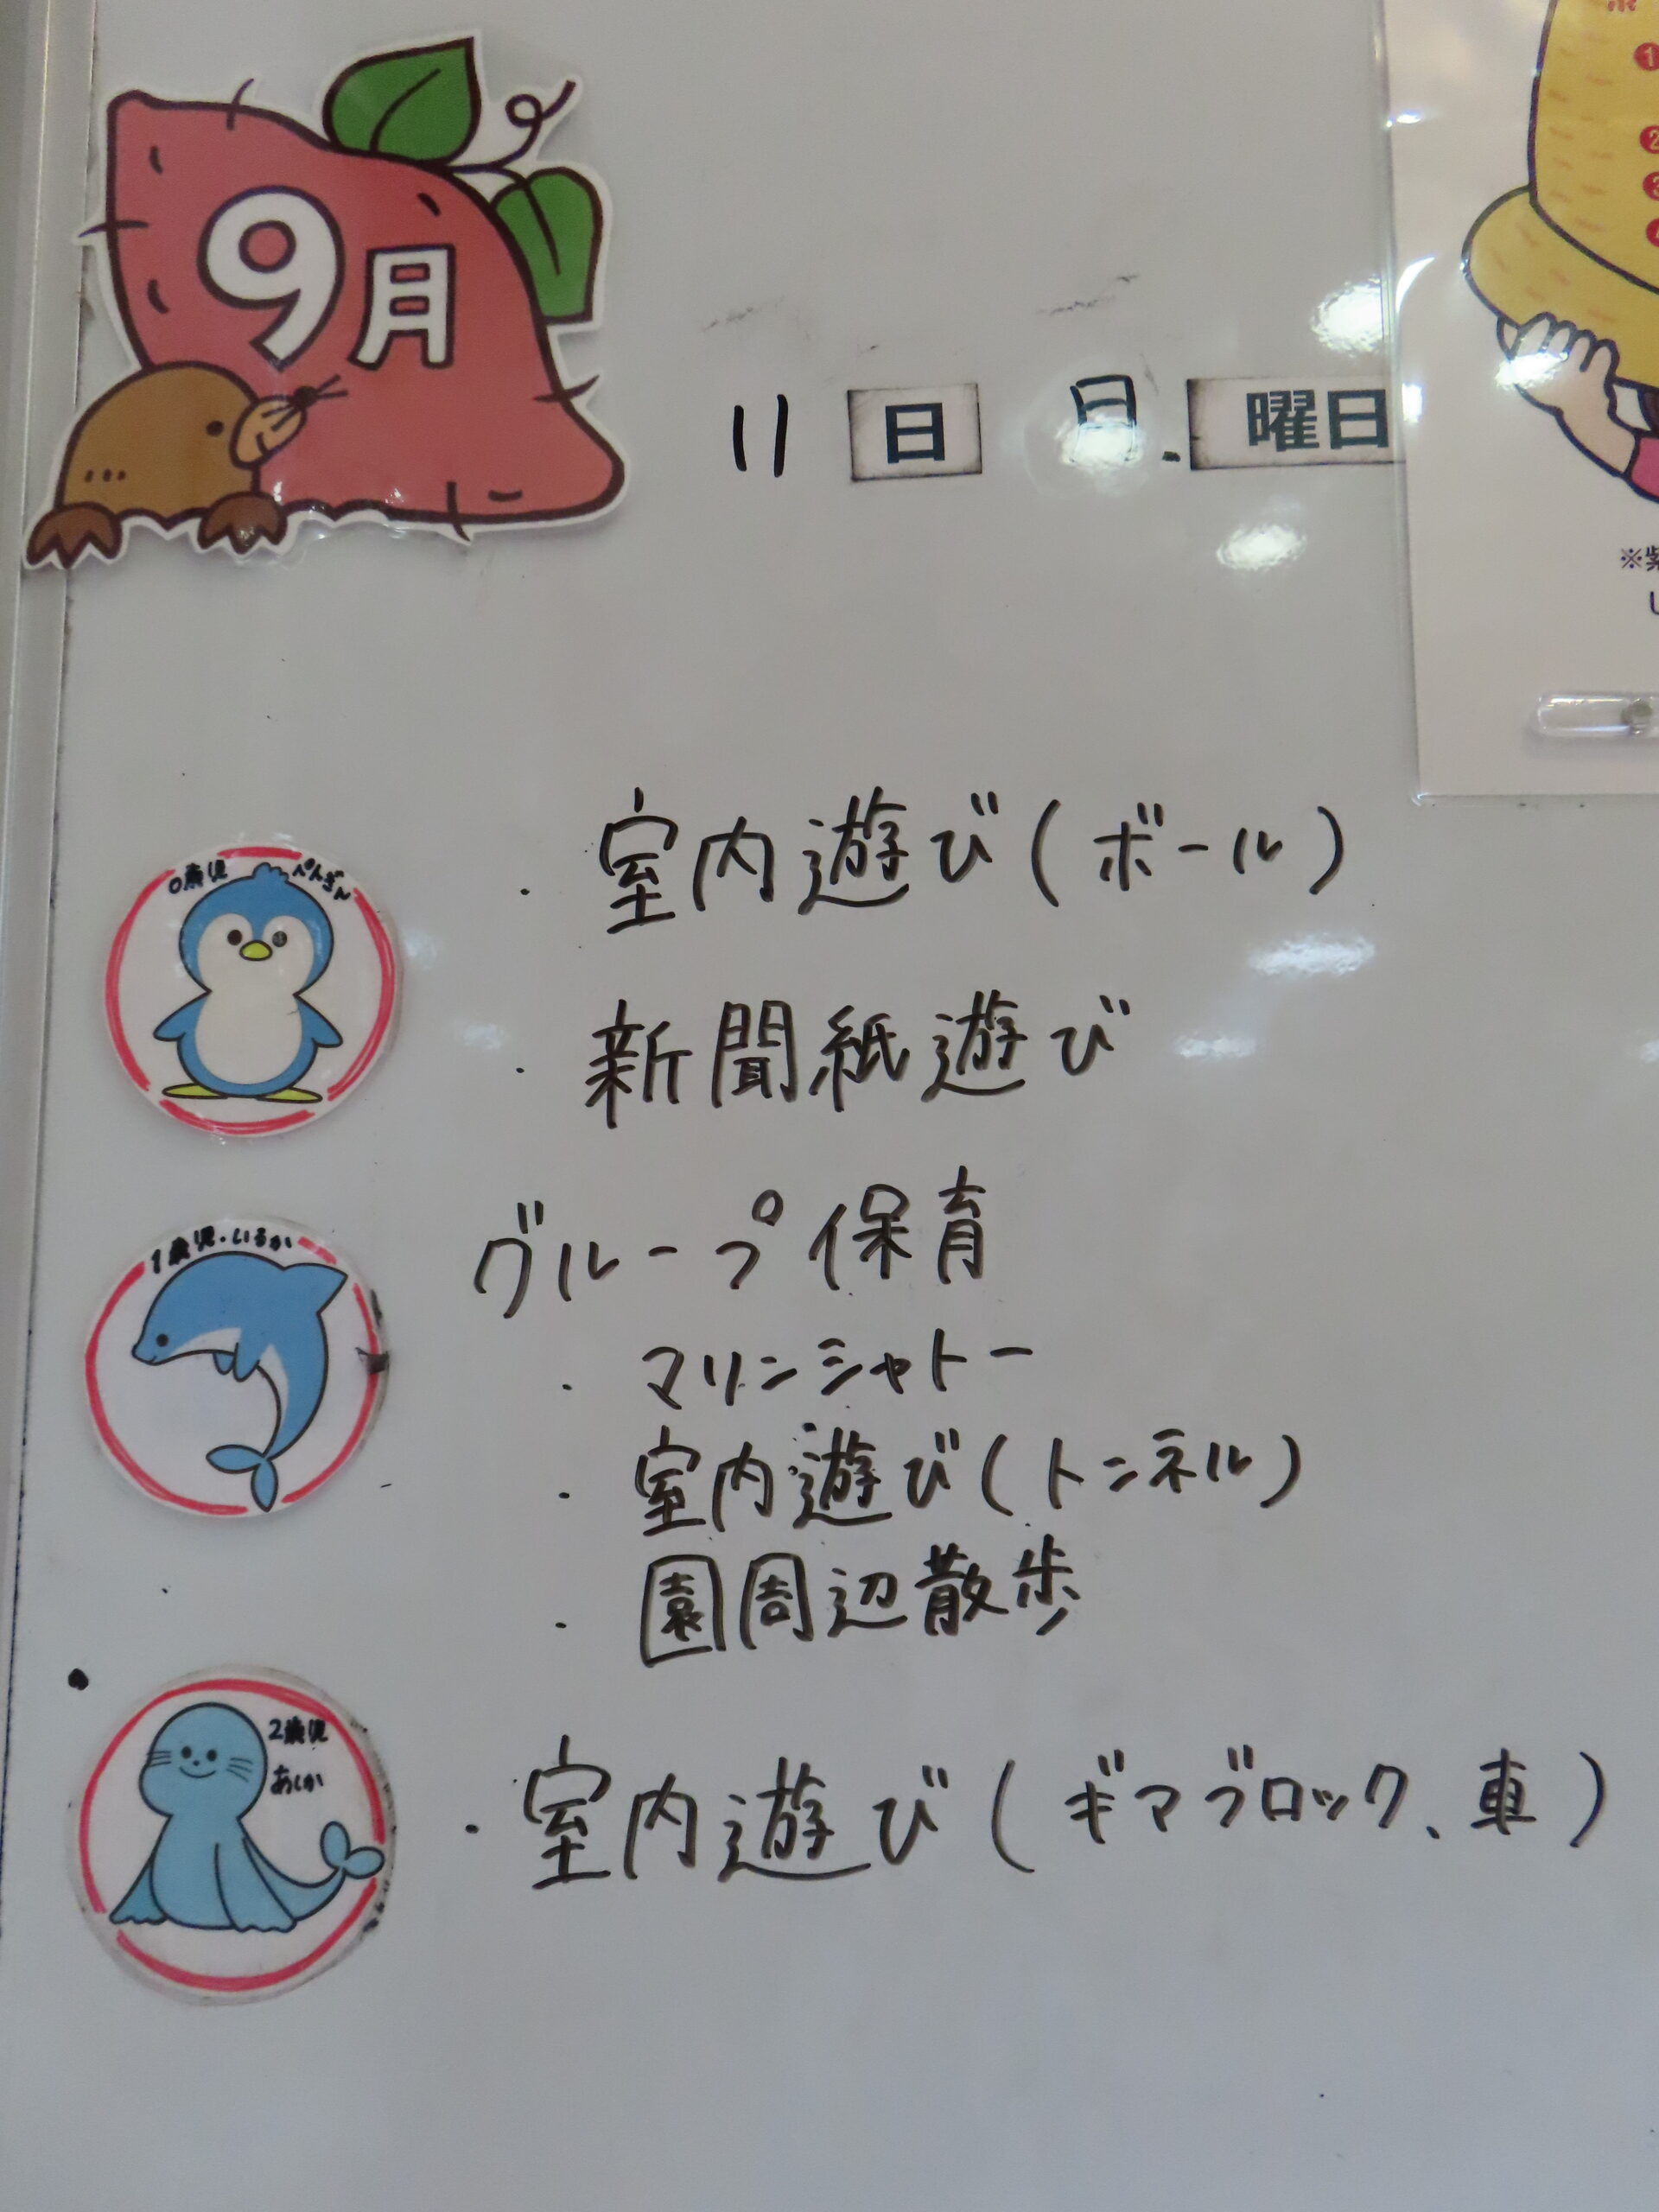 9月
11 日 月 曜日
0歳児 ぺんぎん
・室内遊び(ボール)
・新聞紙遊び
1歳児・いるか
グループ保育
・マリンシャトー
・室内遊び(トンネル)
・園周辺散歩
2歳児
あしか
・室内遊び(ギアブロック、車)
1
2
3
4
※紫
し